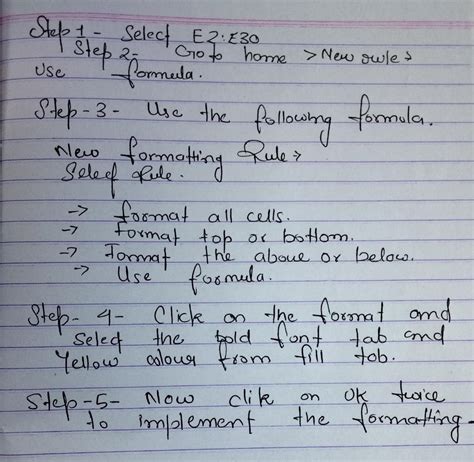 Step 1- Select E2:E30
Step 2- Go to home > New owle >
use formula.
Step-3- Use the following formula.
New formatting Rule >
Select Rule.
-> format all cells.
-> Format top or bottom.
-> Format the above or below.
-> Use formula.
Step- 4- Click on the format and
select the bold font tab and
Yellow colour from fill tab.
Step-5- Now clik on OK twice
to implement the formatting.